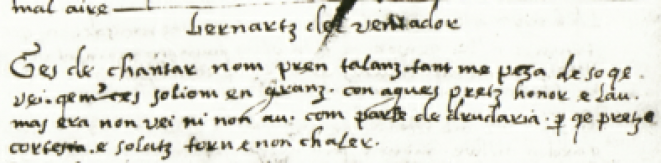 mal aire
bernartz del ventador
Ges de chantar nom pren talanz. tant me peza de so qe
vei. qe metres soliom en granz. con agues pretz honor e lau.
mas era non vei ni non au. com parle de drudaria. p qe pretz e
cortesia. e solatz torn e non chaler.